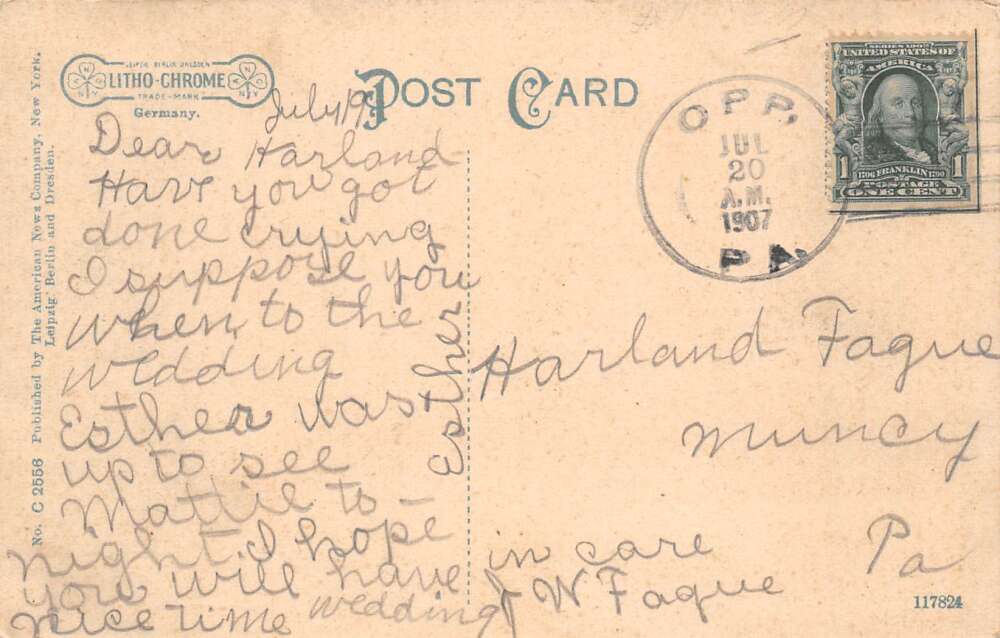 No. C 2556 Published by The American News Company, New York.
Leipzig, Berlin and Dresden.
LEIPZIG BERLIN DRESDEN
LITHO-CHROME
TRADE-MARK
N Y
N Y
Germany.
POST CARD
July 19
Dear Harland
Have you got
done crying
I suppose you
when to the
wedding
Esther was
up to see
Mattie to-
night. I hope
you will have
nice time wedding
Esther
OPP,
JUL
20
A.M.
1907
PA.
SERIES 1902
UNITED STATES OF
AMERICA
1706 FRANKLIN 1790
1 POSTAGE 1
ONE CENT
Harland Fague
Muncy
Pa
in care
J W Fague
117824